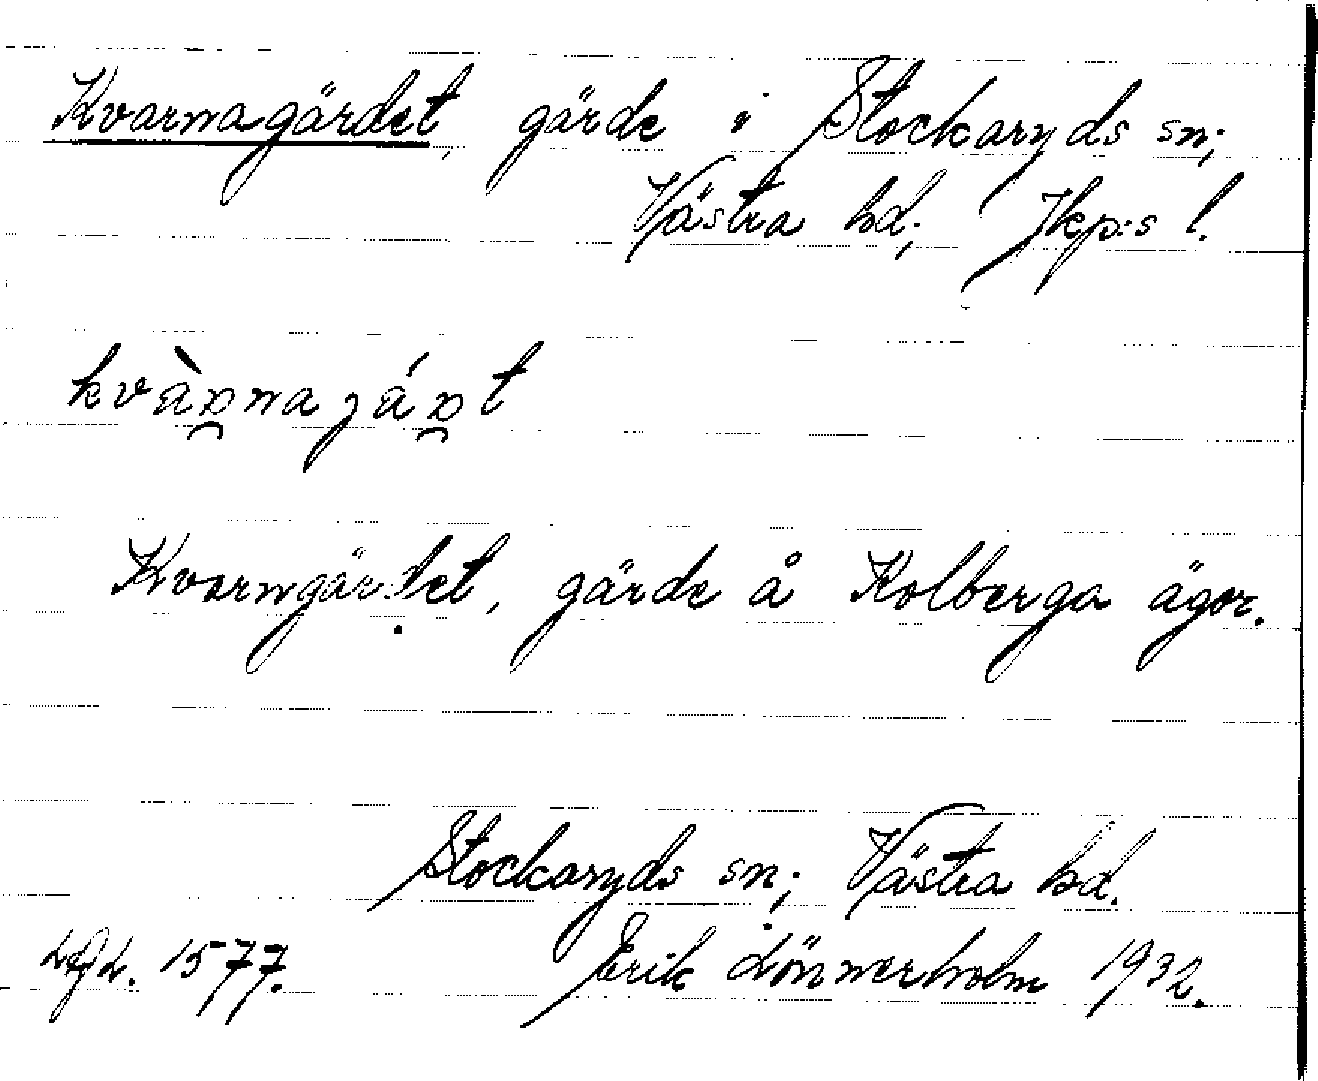 Kvarnagärdet, gärde i Stockaryds sn;
Västra hd; Jkp:s l.
Kvarngärdet, gärde å Kolberga ägor.
Stockaryds sn; Västra hd.
1577. Erik Lönnerholm 1932.